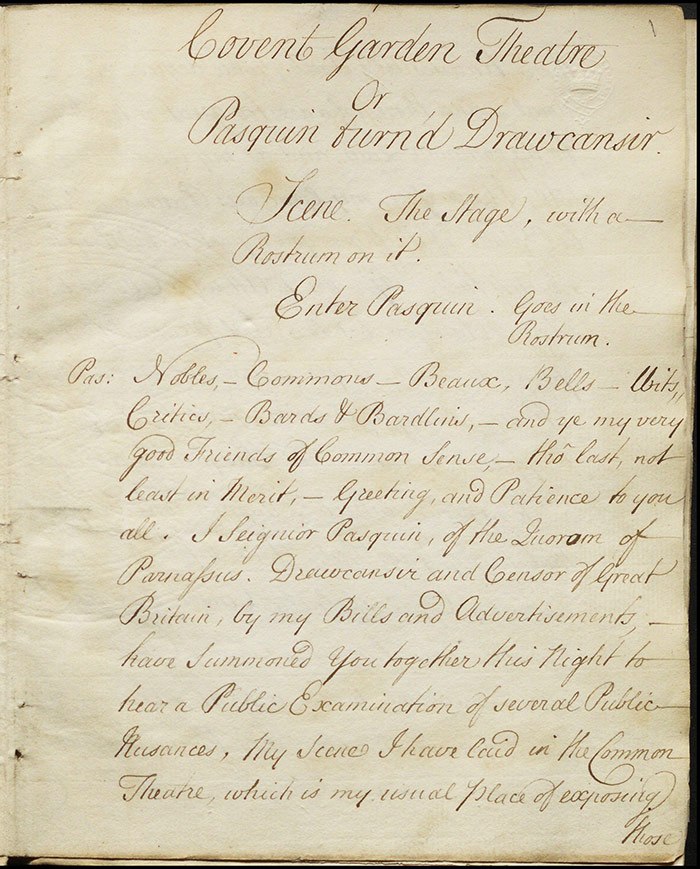 1
Covent Garden Theatre
Or
Pasquin turn'd Drawcansir.
Scene. The Stage, with a
Rostrum on it.
Enter Pasquin. Goes in the
Rostrum.
Pas: Nobles, – Commons – Beaux, Bells – Wits,
Critics, – Bards & Bardlins, – and ye my very
good Friends of Common Sense, – tho last, not
least in Merit, – Greeting, and Patience to you
all. I Seignior Pasquin, of the Quorom of
Parnassus. Drawcansir and Censor of Great
Britain, by my Bills and Advertisements, –
have Summoned You together this Night to
hear a Public Examination of several Public
Nusances, My Scene I have laid in the Common
Theatre, which is my usual place of exposing
those